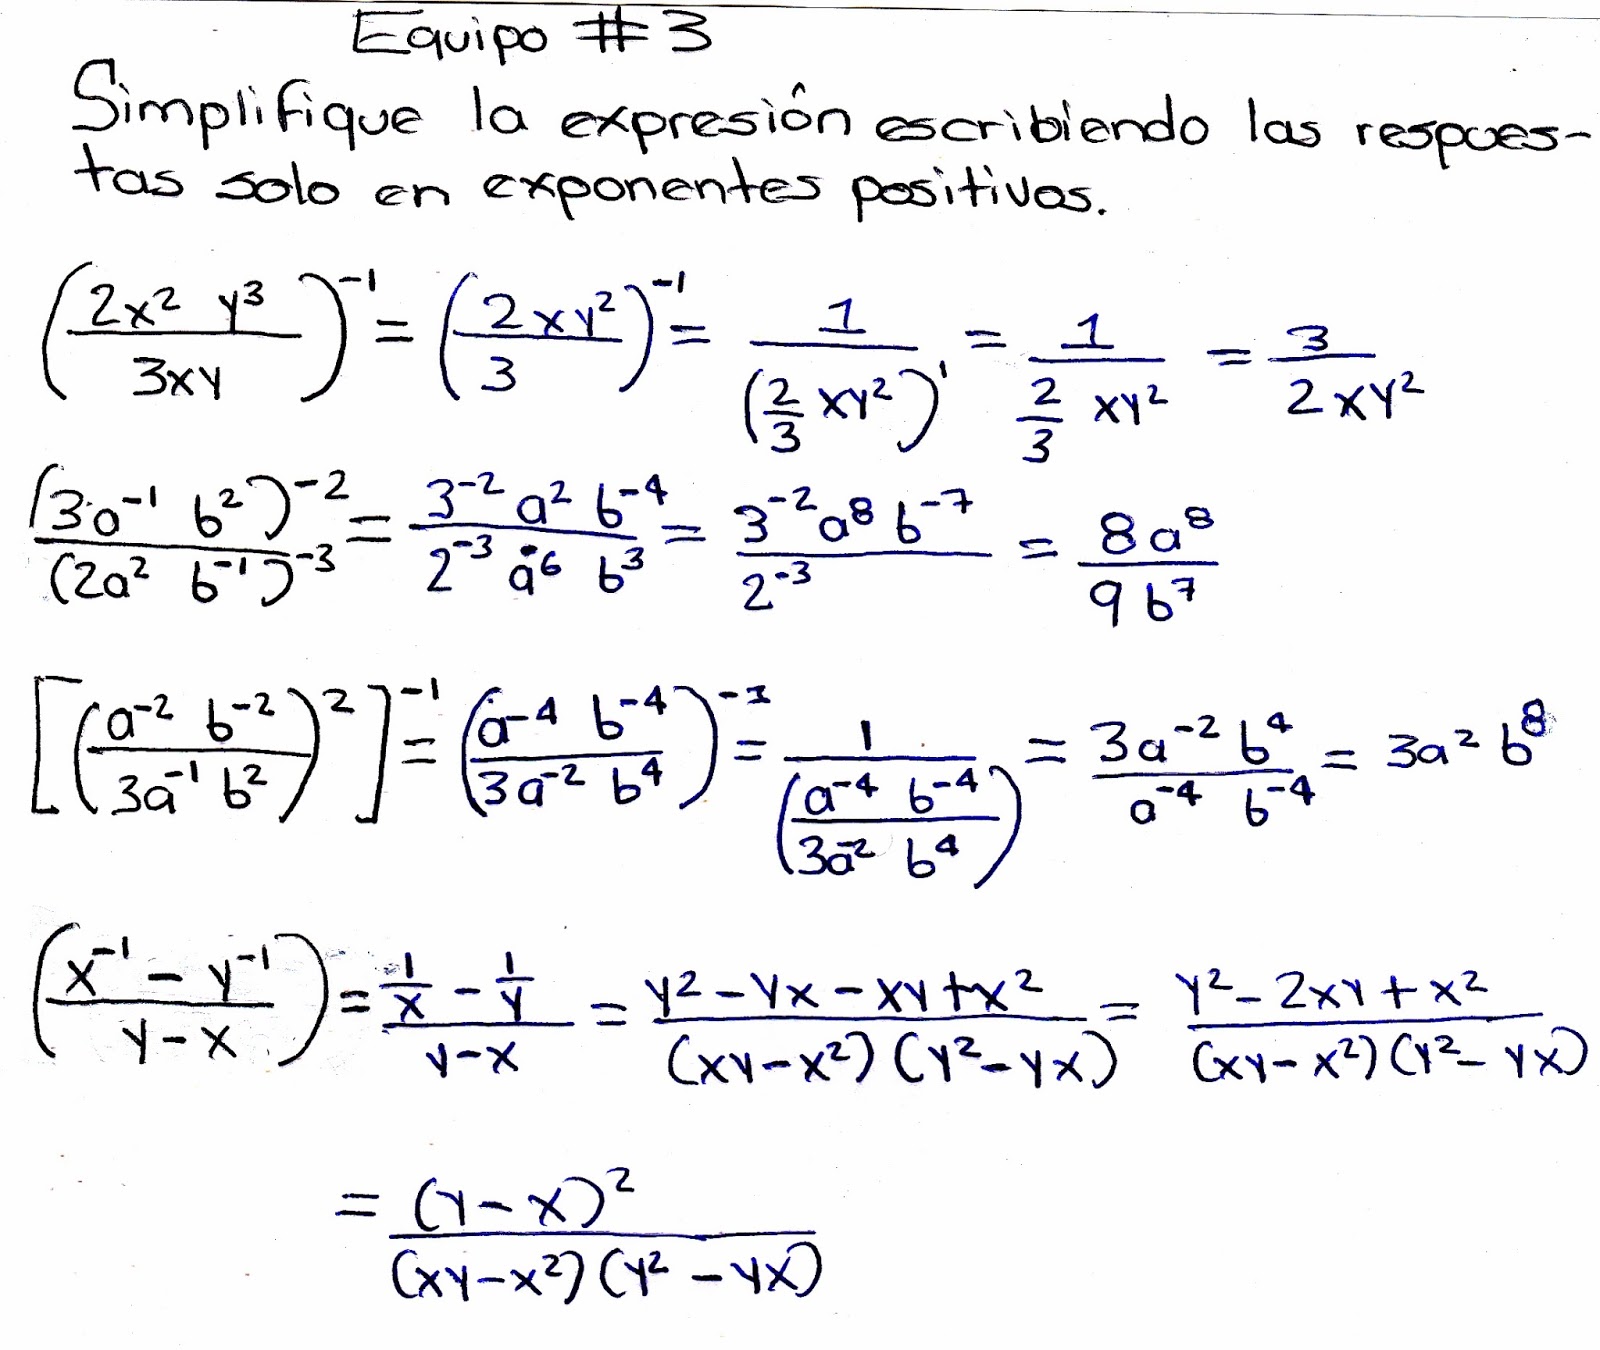 Equipo #3
Simplifique la expresión escribiendo las respues-
tas solo en exponentes positivos.
(2x² y³ / 3xy)⁻¹ = (2xy² / 3)⁻¹ = 1 / (2/3 xy²)¹ = 1 / (2/3 xy²) = 3 / 2xy²
(3a⁻¹ b²)⁻² / (2a² b⁻¹)⁻³ = 3⁻² a² b⁻⁴ / 2⁻³ a⁻⁶ b³ = 3⁻² a⁸ b⁻⁷ / 2⁻³ = 8a⁸ / 9b⁷
[(a⁻² b⁻² / 3a⁻¹ b²)²]⁻¹ = (a⁻⁴ b⁻⁴ / 3a⁻² b⁴)⁻¹ = 1 / (a⁻⁴ b⁻⁴ / 3a⁻² b⁴) = 3a⁻² b⁴ / a⁻⁴ b⁻⁴ = 3a² b⁸
(x⁻¹ - y⁻¹ / y-x) = 1/x - 1/y / y-x = y² - yx - xy + x² / (xy-x²)(y²-yx) = y² - 2xy + x² / (xy-x²)(y²-yx)
= (y-x)² / (xy-x²)(y²-yx)